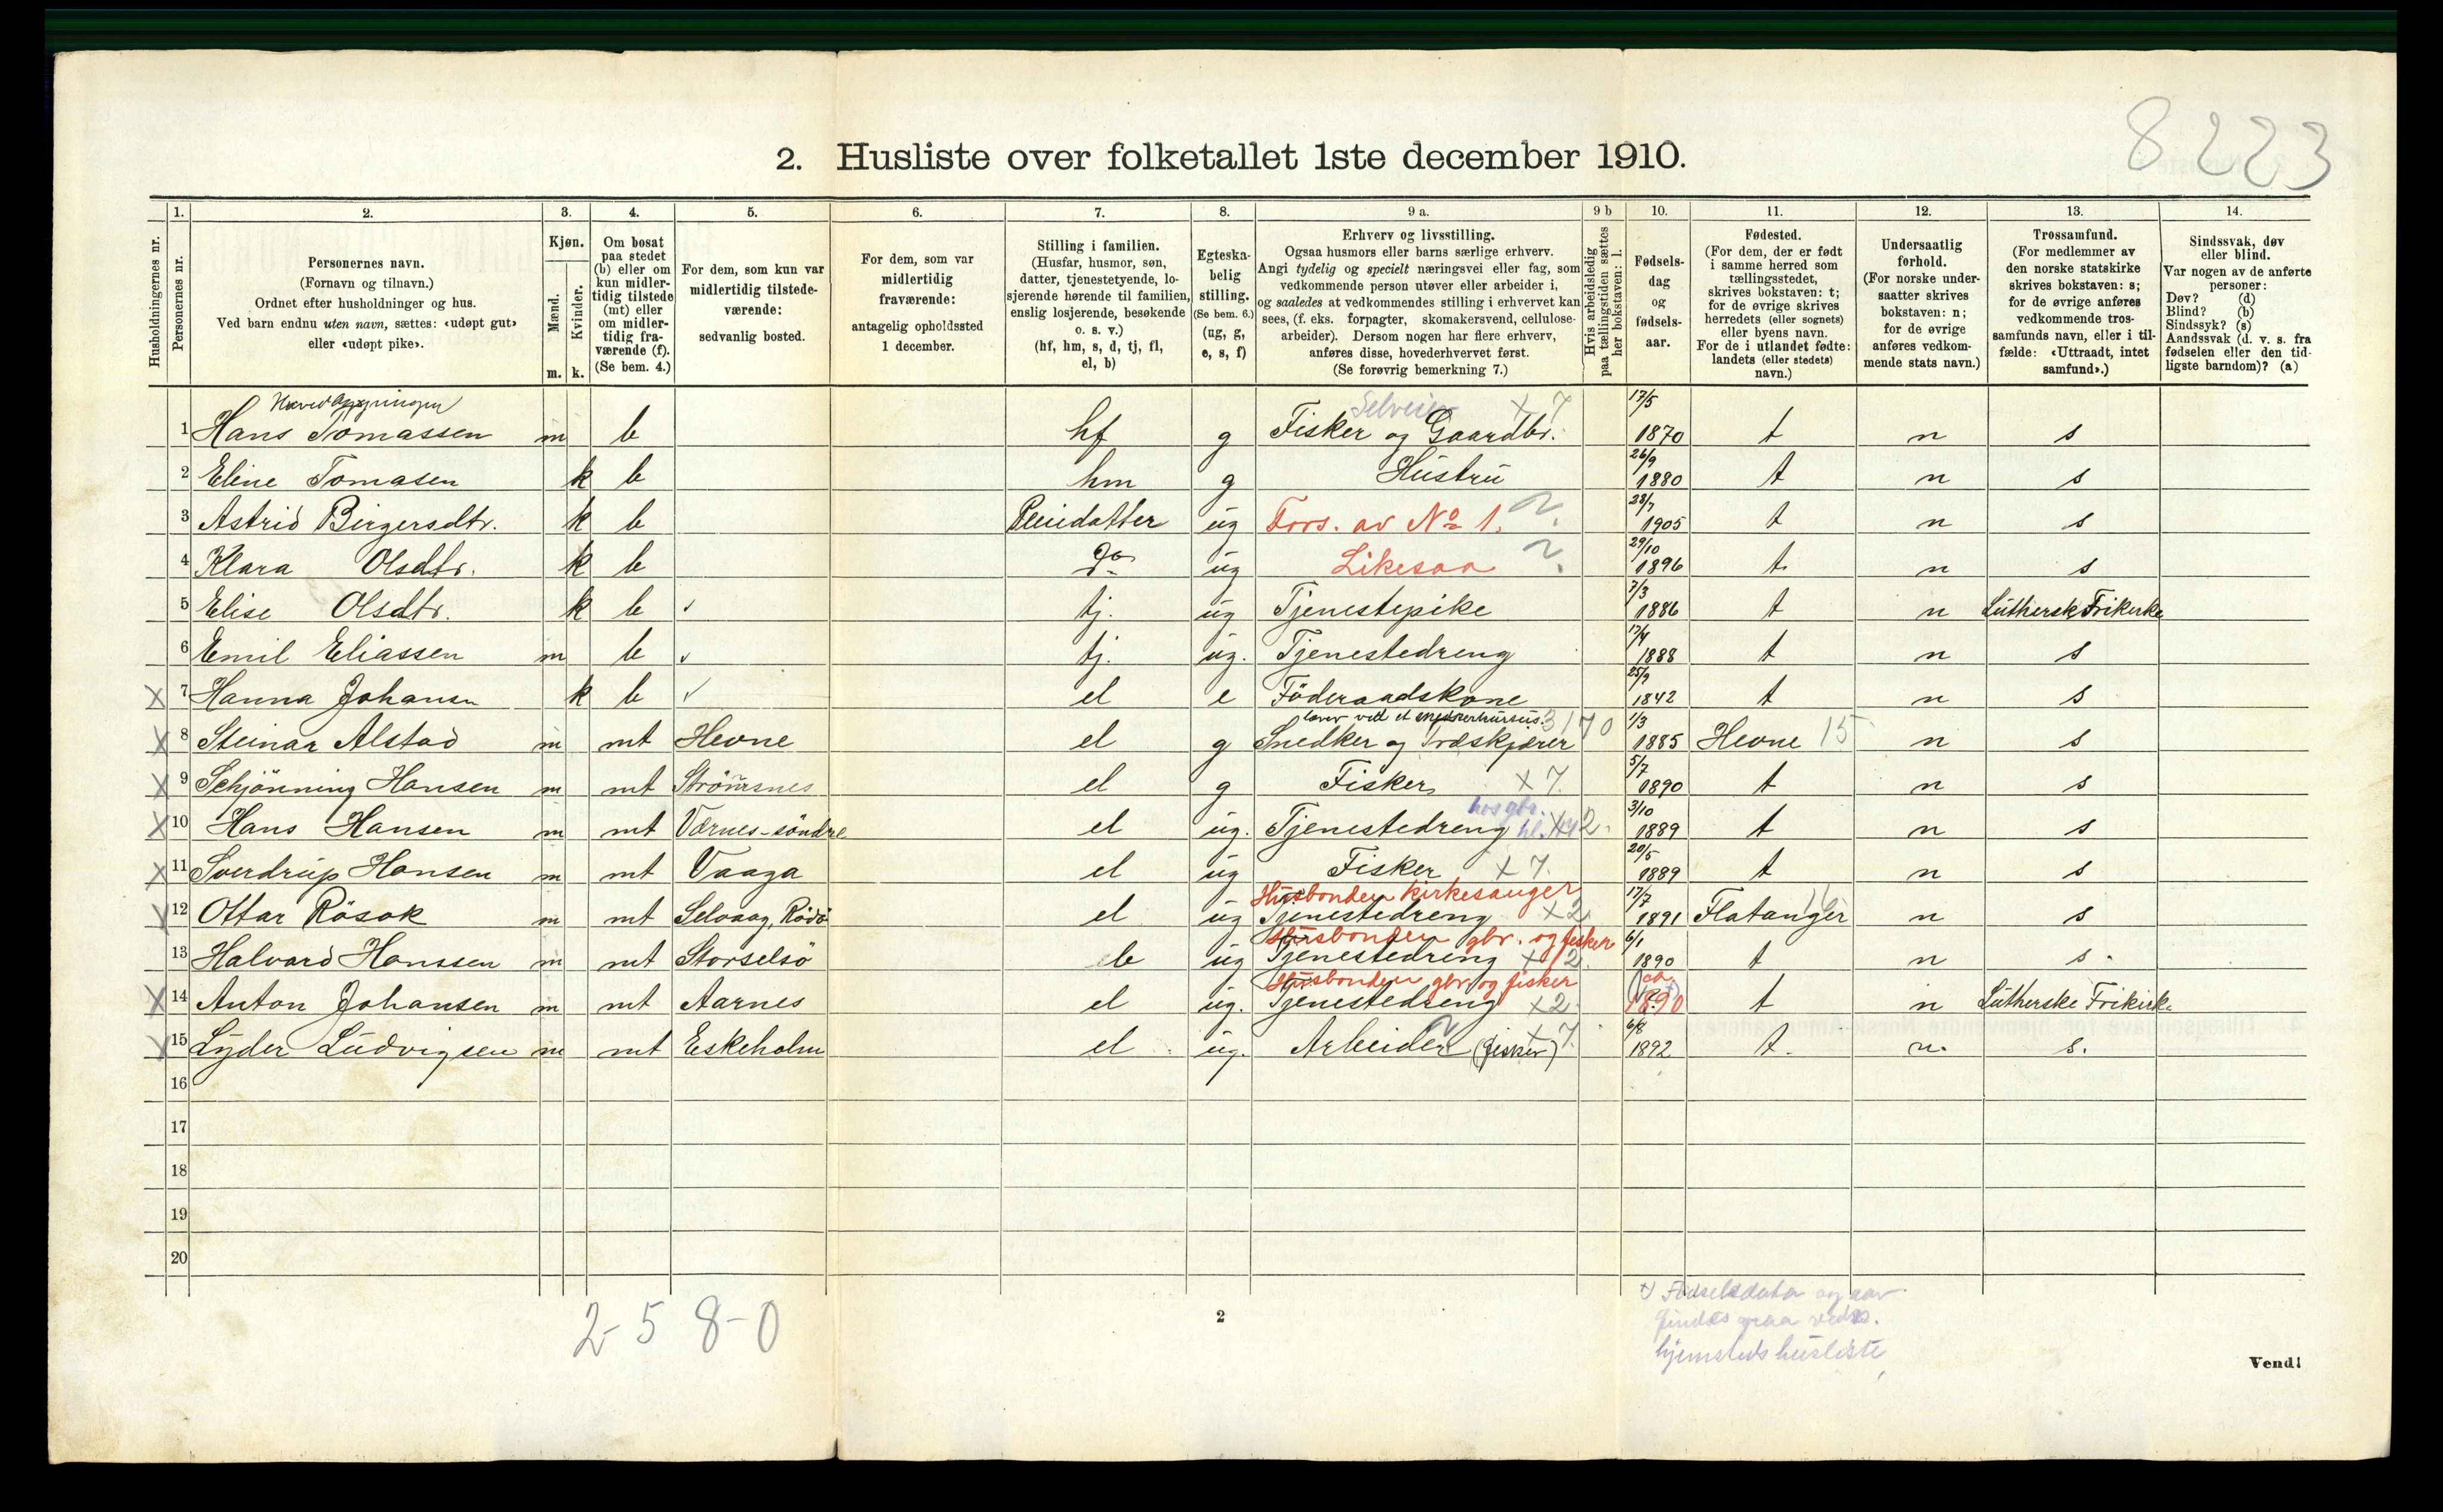 8223
2. Husliste over folketallet 1ste december 1910.
Husholdningernes nr.
1.
Personernes nr.
2.
Personernes navn.
(Fornavn og tilnavn.)
Ordnet efter husholdninger og hus.
Ved barn endnu uten navn, sættes: «udøpt gut»
eller «udøpt pike».
3.
Kjøn.
Mænd.
Kvinder.
m. k.
4.
Om bosat
paa stedet
(b) eller om
kun midler-
tidig tilstede
(mt) eller
om midler-
tidig fra-
værende (f).
(Se bem. 4.)
5.
For dem, som kun var
midlertidig tilstede-
værende:
sedvanlig bosted.
6.
For dem, som var
midlertidig
fraværende:
antagelig opholdssted
1 december.
7.
Stilling i familien.
(Husfar, husmor, søn,
datter, tjenestetyende, lo-
sjerende hørende til familien,
enslig losjerende, besøkende
o. s. v.)
(hf, hm, s, d, tj, fl,
el, b)
8.
Egteska-
belig
stilling.
(Se bem. 6.)
(ug, g,
e, s, f)
9 a.
Erhverv og livsstilling.
Ogsaa husmors eller barns særlige erhverv.
Angi tydelig og specielt næringsvei eller fag, som
vedkommende person utøver eller arbeider i,
og saaledes at vedkommendes stilling i erhvervet kan
sees, (f. eks. forpagter, skomakersvend, cellulose-
arbeider). Dersom nogen har flere erhverv,
anføres disse, hovederhvervet først.
(Se forøvrig bemerkning 7.)
9 b
Hvis arbeidsledig
paa tællingstiden sættes
her bokstaven: l.
10.
Fødsels-
dag
og
fødsels-
aar.
11.
Fødested.
(For dem, der er født
i samme herred som
tællingsstedet,
skrives bokstaven: t;
for de øvrige skrives
herredets (eller sognets)
eller byens navn.
For de i utlandet fødte:
landets (eller stedets)
navn.)
12.
Undersaatlig
forhold.
(For norske under-
saatter skrives
bokstaven: n;
for de øvrige
anføres vedkom-
mende stats navn.)
13.
Trossamfund.
(For medlemmer av
den norske statskirke
skrives bokstaven: s;
for de øvrige anføres
vedkommende tros-
samfunds navn, eller i til-
fælde: «Uttraadt, intet
samfund».)
14.
Sindssvak, døv
eller blind.
Var nogen av de anførte
personer:
Døv? (d)
Blind? (b)
Sindssyk? (s)
Aandssvak (d. v. s. fra
fødselen eller den tid-
ligste barndom)? (a)
Selveier x 7 17/5
1 Hans Tomassen m b hf g Fisker og Gaardbr. 1870 t n s
2 Eline Tomasen k b hm g Hustru 26/9 1880 t n s
3 Astrid Birgersdtr. k b Pleiedatter ug Fors. av No 1. 28/7 1905 t n s
4 Klara Olsdtr. k b Do ug Likesaa 29/10 1896 t n s
5 Elise Olsdtr. k b tj. ug Tjenestepike 7/3 1886 t n Luthersk Frikirke
6 Emil Eliassen m b tj. ug. Tjenestedreng 17/4 1888 t n s
x 7 Hanna Johansn k b el e Föderaadskone 25/9 1842 t n s
lærer ved et snedkerkursus. 3170
x 8 Steinar Alstad m mt Hevne el g Snedker og Træskjærer 1/3 1885 Hevne 15 n s
x 9 Schjönning Hansen m mt Strömsnes el g Fisker x 7. 5/7 1890 t n s
hos gbr.
x 10 Hans Hansen m mt Værnes-söndre el ug. Tjenestedreng x 2. 3/10 1889 t n s
x 11 Sverdrup Hansen m mt Vaaga el ug Fisker x 7. 20/5 1889 t n s
Husbonden kirkesanger
x 12 Ottar Rösok m mt Selvaag, Rödö el ug Tjenestedreng x 2 17/7 1891 Flatanger n s
Husbonden gbr. og fisker
13 Halvard Hanssen m mt Storselsö ug Tjenestedreng x 2. 6/1 1890 t n s.
Husbonden gbr og fisker ca
x 14 Anton Johansen m mt Aarnes el ug. Tjenestedreng x 2. 1890 t n Lutherske Frikirke
x 15 Lyder Ludvigsen m mt Eskeholm el ug. Arbeider (fisker) x 7. 6/8 1892 t. n. s.
16
17
18
19
20
2-5 8-0
2
x) Fødselsdato og aar
findes paa vedk.
hjemsteds husliste
Vend!